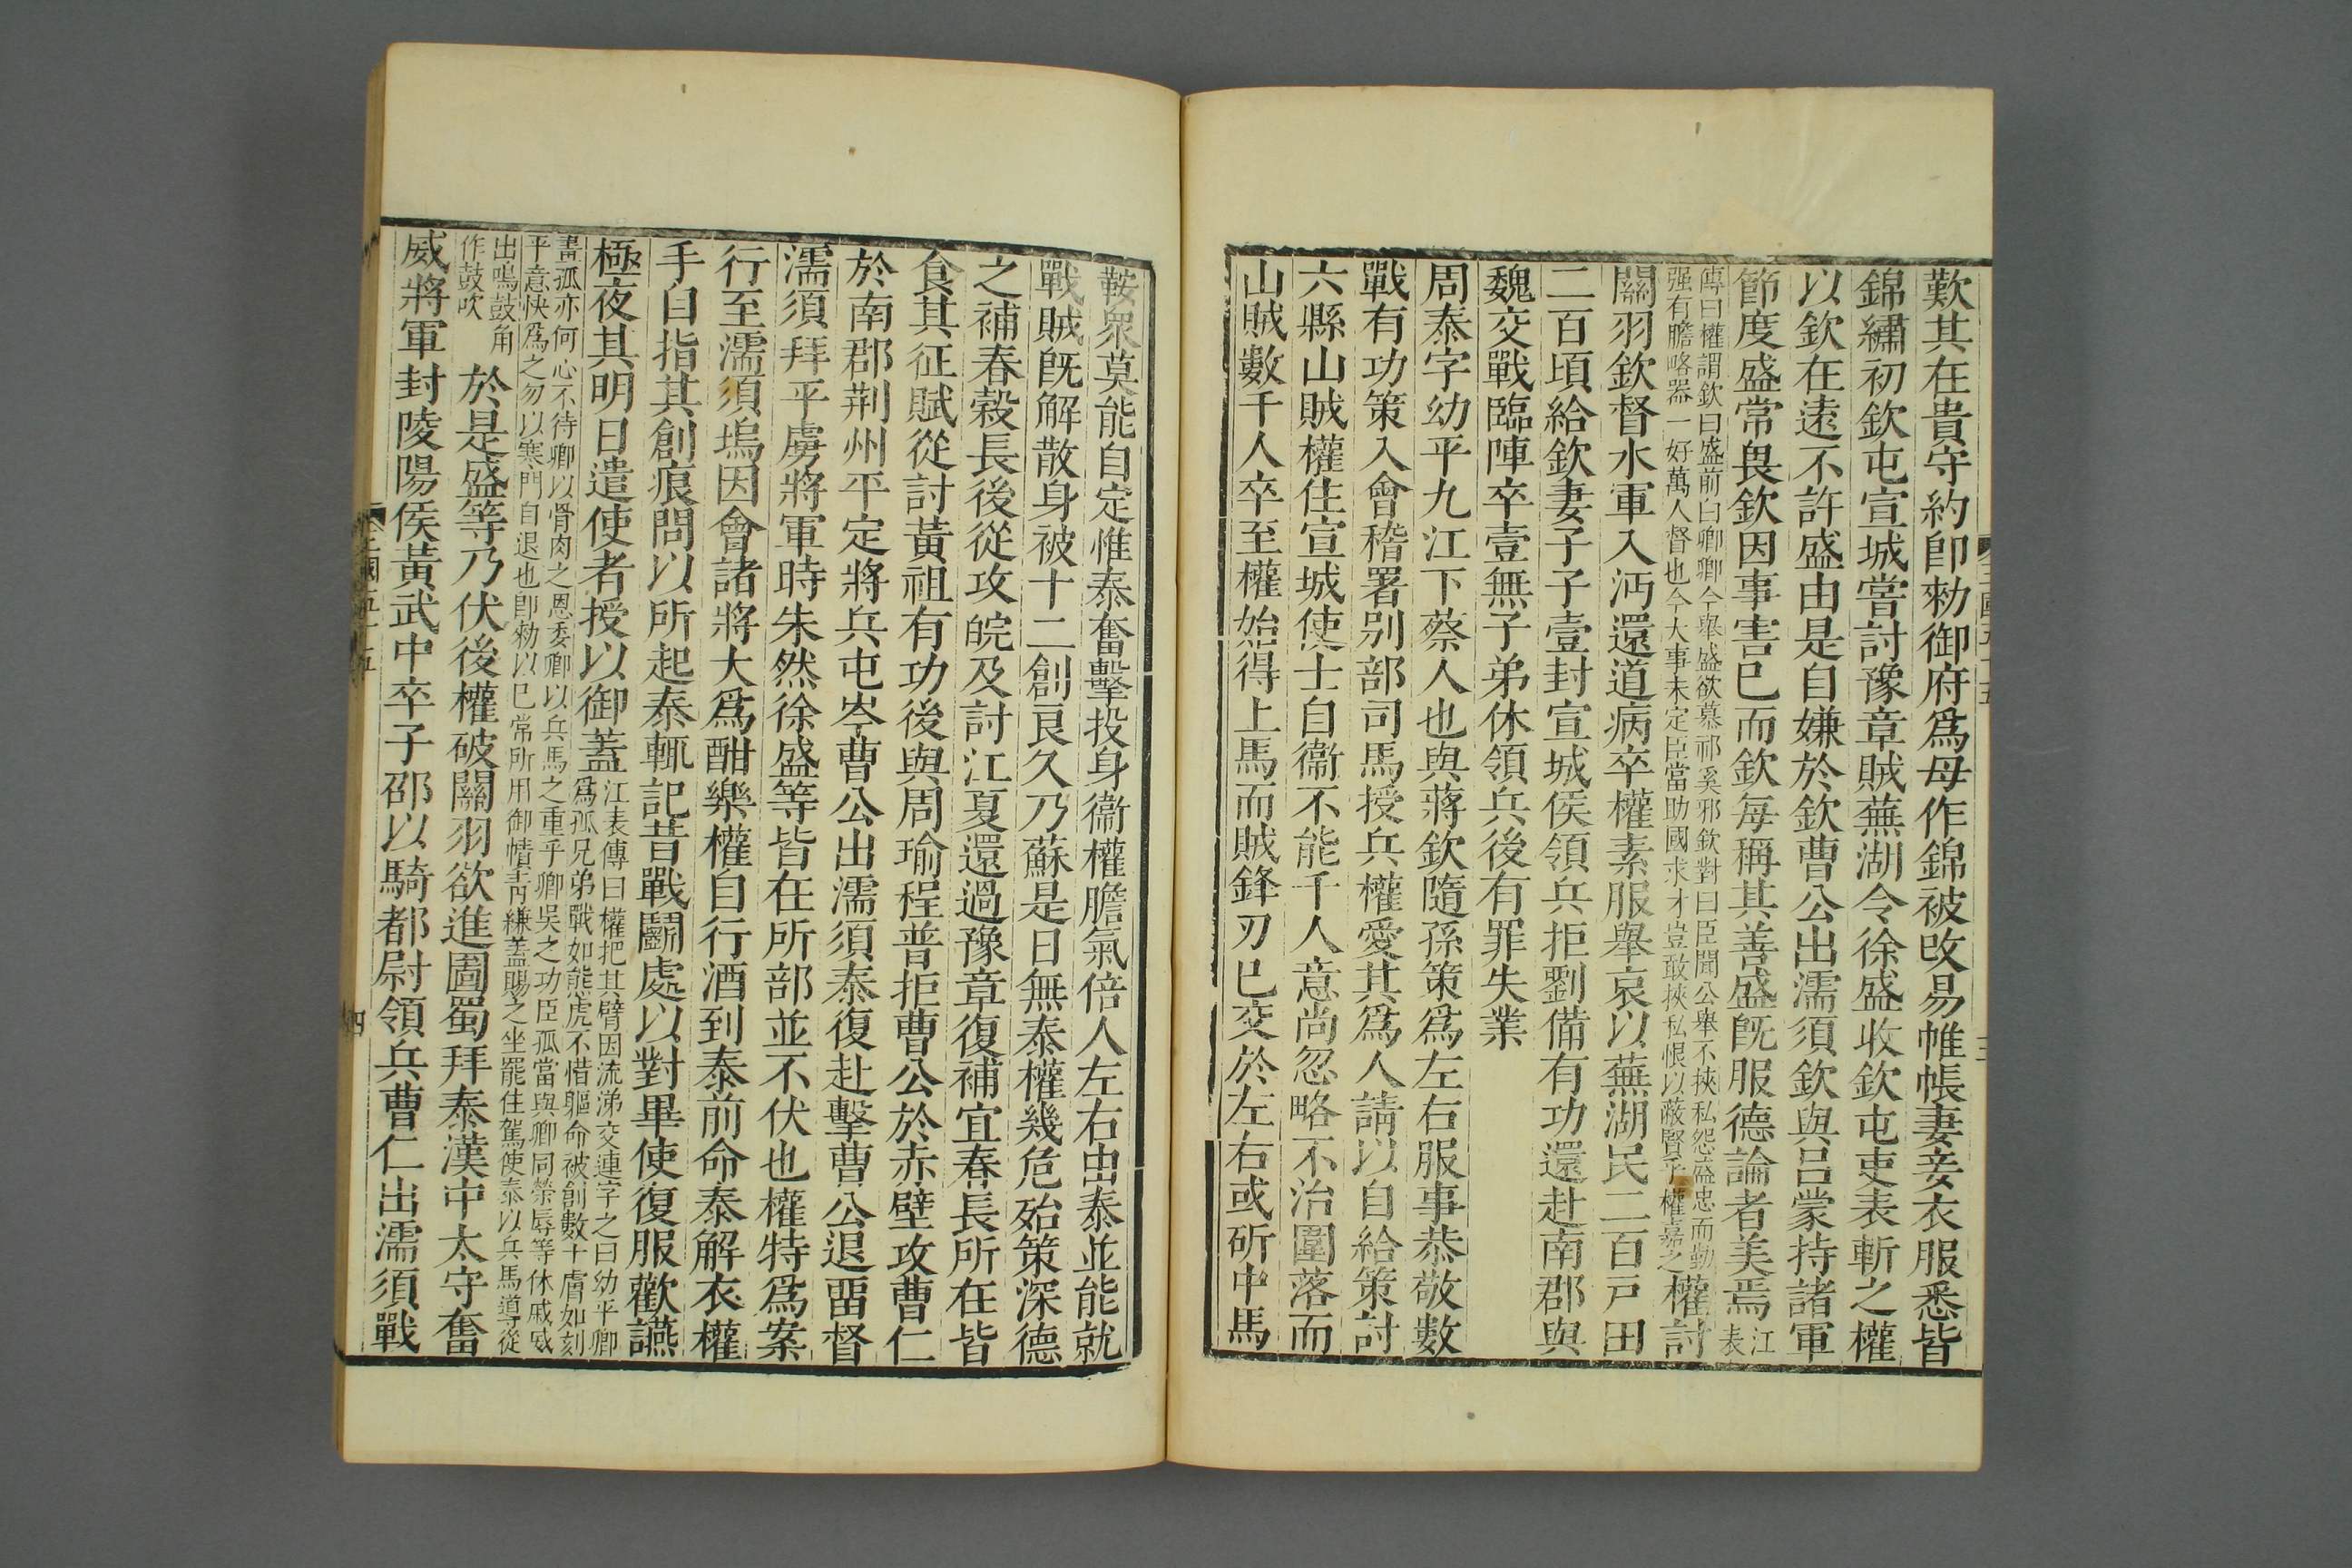 歎其在貴守約卽勑御府爲母作錦被改易帷帳妻妾衣服悉皆
錦繡初欽屯宣城嘗討豫章賊蕪湖令徐盛收欽屯吏表斬之權
以欽在遠不許盛由是自嫌於欽曹公出濡須欽與呂蒙持諸軍
節度盛常畏欽因事害已而欽每稱其善盛旣服德論者美焉
江
表
傳曰權謂欽曰盛前白卿卿今舉盛欲慕祁奚邪欽對曰臣聞公舉不挾私怨盛忠而勤
强有膽略器一好萬人督也今大事未定臣當助國求才豈敢挾私恨以蔽賢乎權嘉之
權討
關羽欽督水軍入沔還道病卒權素服舉哀以蕪湖民二百戸田
二百頃給欽妻子子壹封宣城侯領兵拒劉備有功還赴南郡與
魏交戰臨陣卒壹無子弟休領兵後有罪失業
周泰字幼平九江下蔡人也與蔣欽隨孫策爲左右服事恭敬數
戰有功策入會稽署别部司馬授兵權愛其爲人請以自給策討
六縣山賊權住宣城使士自衞不能千人意尚忽略不治圍落而
山賊數千人卒至權始得上馬而賊鋒刃已交於左右或斫中馬
三國五十五
三
鞍衆莫能自定惟泰奮擊投身衞權膽氣倍人左右由泰並能就
戰賊旣解散身被十二創良久乃蘇是日無泰權幾危殆策深德
之補春穀長後從攻皖及討江夏還過豫章復補宜春長所在皆
食其征賦從討黃祖有功後與周瑜程普拒曹公於赤壁攻曹仁
於南郡荆州平定將兵屯岑曹公出濡須泰復赴擊曹公退畱督
濡須拜平虜將軍時朱然徐盛等皆在所部並不伏也權特爲案
行至濡須塢因會諸將大爲酣樂權自行酒到泰前命泰解衣權
手自指其創痕問以所起泰輒記昔戰鬭處以對畢使復服歡讌
極夜其明日遣使者授以御蓋
江表傳曰權把其臂因流涕交連字之曰幼平卿
爲孤兄弟戰如熊虎不惜軀命被創數十膚如刻
畫孤亦何心不待卿以骨肉之恩委卿以兵馬之重乎卿吳之功臣孤當與卿同榮辱等休戚威
平意快爲之勿以寒門自退也卽勑以已常所用御幘靑縑蓋賜之坐罷住駕使泰以兵馬導從
出鳴鼓角
作鼓吹
於是盛等乃伏後權破關羽欲進圖蜀拜泰漢中太守奮
威將軍封陵陽侯黃武中卒子邵以騎都尉領兵曹仁出濡須戰
三國五十五
四